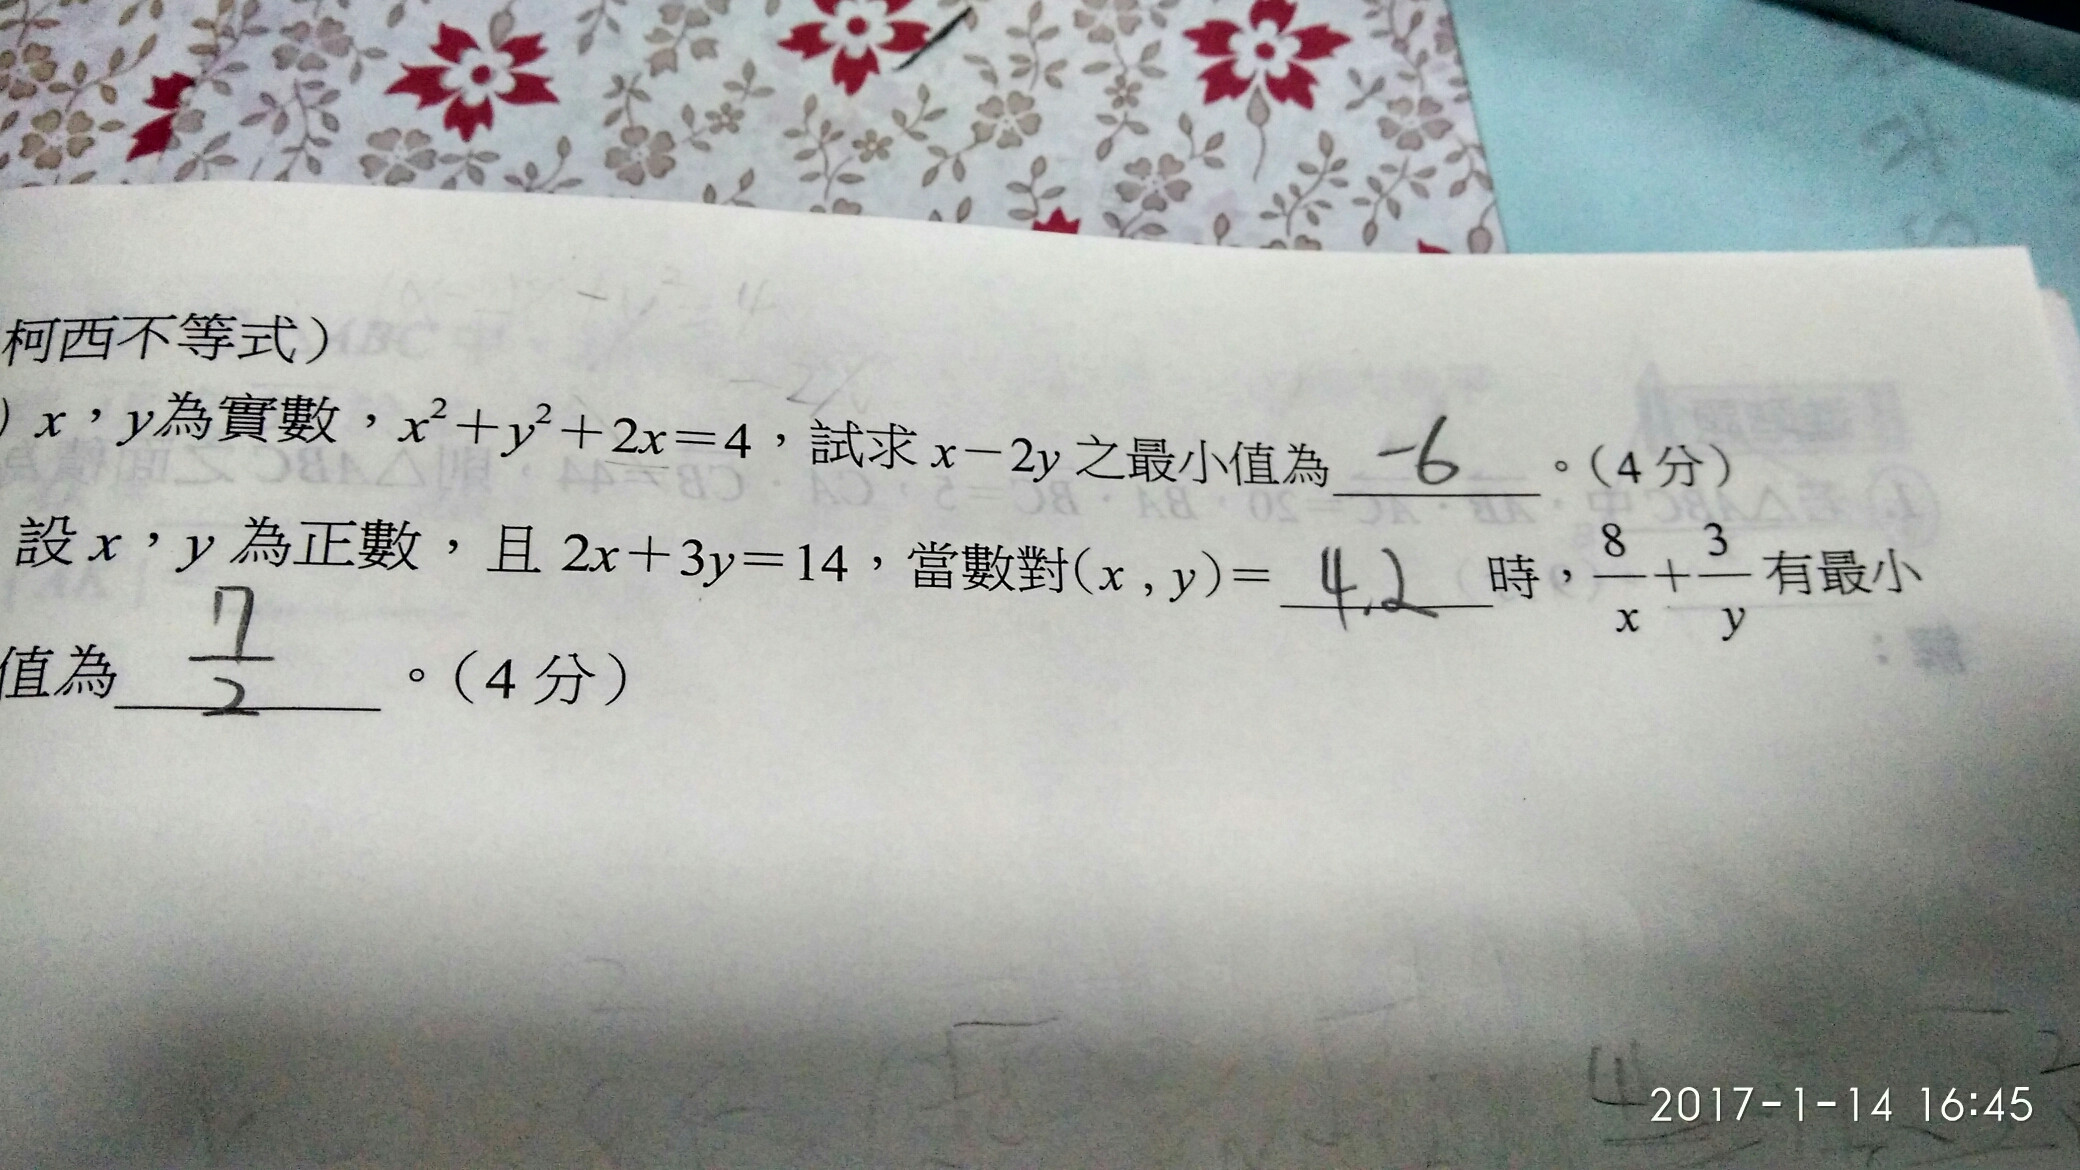 柯西不等式)
) x，y為實數，x²+y²+2x=4，試求 x-2y 之最小值為 -6 。(4 分)
設 x，y 為正數，且 2x+3y=14，當數對(x , y)= 4,2 時，8/x+3/y 有最小
值為 7/2 。(4 分)
2017-1-14 16:45